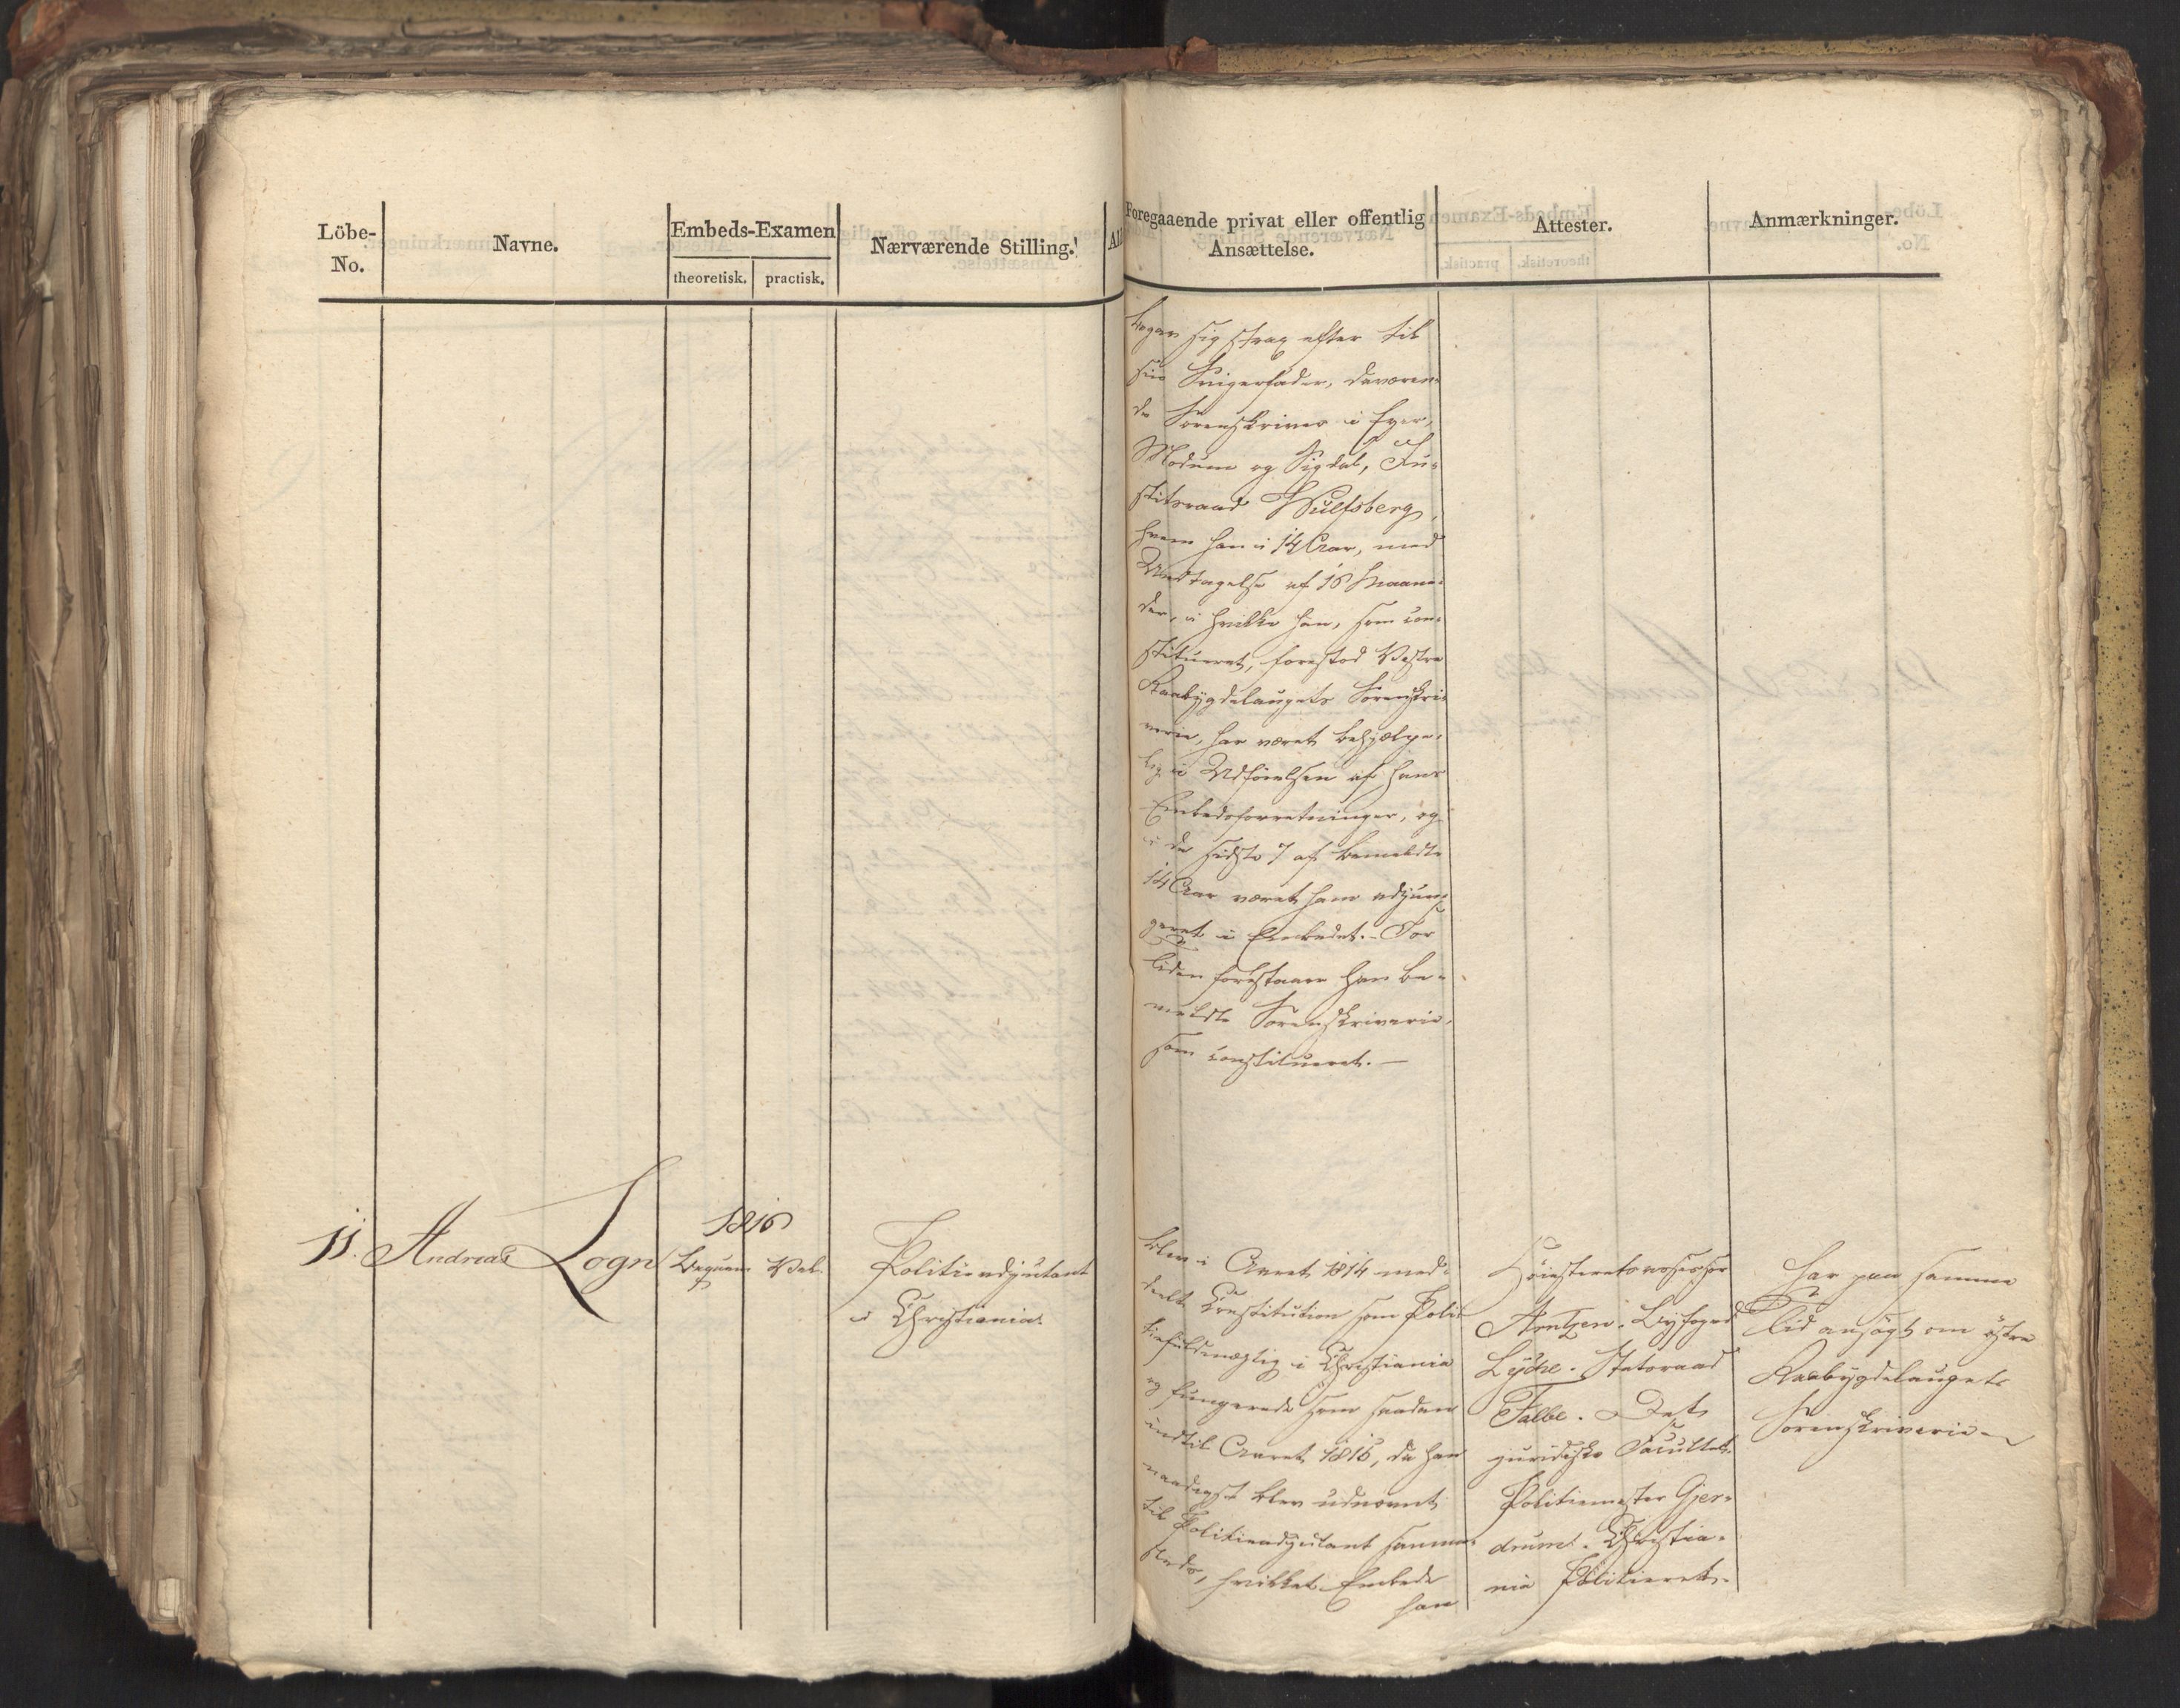 Löbe-
No.
Navne.
Embeds-Examen
theoretisk. practisk.
Nærværende Stilling.
Al
Foregaaende privat eller offentlig
Ansættelse.
Attester.
Anmærkninger.
begav sig strax efter til
sin Svigerfader, daværen-
de Sorenskriver i Eger,
Modum og Sigdal, Ju-
stitsraad Wulfsberg,
hvem han i 14 Aar, med
Undtagelse af 16 Maane-
der, i hvilke han, som con-
stitueret, forestod Vestre
Raabygdelaugets Sorenskri-
verie, har været behjælpe-
lig i Udførelsen af hans
Embedsforretninger, og
i de sidste 7 af bemeldte
14 Aar været ham adjun-
geret i Embedet. - For
tiden forestaaer han be-
meldte Sorenskriverie,
som constitueret. —
11. Andreas Logn
1816
Beqvem Vel.
Politieadjutant
i Christiania.
blev i Aaret 1814 med-
deelt Constitution som Poli-
tiefuldmægtig i Christiania
og fungerede som saadan
indtil Aaret 1816, da han
naadigst blev udnævnt
til Politieadjutant samme-
steds, hvilket Embede
han
Høiesteretsassessor
Arntzen. Byfoged
Lyche. Statsraad
Falbe. Det
juridiske Facultet.
Politiemester Gjer-
drum. Christia-
nia Politieret.
Har paa samme
Tid ansøgt om østre
Raabygdelaugets
Sorenskriverie